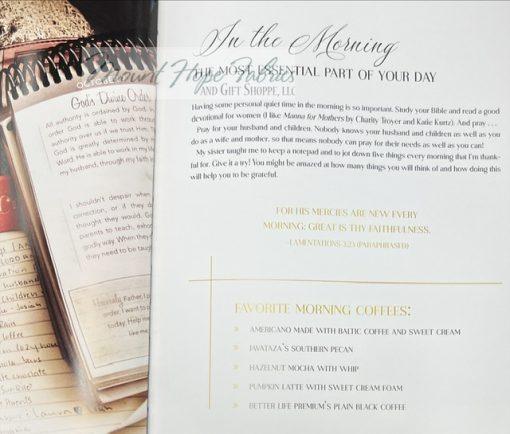 October
God's Divine Order
All authority is ordained by God. In
order God is able to work through
authority over us if we trust Him. Th
God is greatly determined by
Word. He is able to work in my
my husband, through my faith in
I shouldn't despair when
correction, or if they d
thought they would. G
parents to teach, exho
godly way. When they
they need to be taug
Heavenly Father, I p
order, I want to p
today. Help me
like me
In the Morning
THE MOST ESSENTIAL PART OF YOUR DAY
Mount Hope Fabrics
AND GIFT SHOPPE, LLC
Having some personal quiet time in the morning is so important. Study your Bible and read a good
devotional for women (I like Manna for Mothers by Charity Troyer and Katie Kurtz). And pray . . .
Pray for your husband and children. Nobody knows your husband and children as well as you
do as a wife and mother, so that means nobody can pray for their needs as well as you can!
My sister taught me to keep a notepad and to jot down five things every morning that I'm thank-
ful for. Give it a try! You might be amazed at how many things you will think of and how doing this
will help you to be grateful.
FOR HIS MERCIES ARE NEW EVERY
MORNING: GREAT IS THY FAITHFULNESS.
–LAMENTATIONS 3:23 (PARAPHRASED)
FAVORITE MORNING COFFEES:
» AMERICANO MADE WITH BALTIC COFFEE AND SWEET CREAM
» JAVATAZA'S SOUTHERN PECAN
» HAZELNUT MOCHA WITH WHIP
» PUMPKIN LATTE WITH SWEET CREAM FOAM
» BETTER LIFE PREMIUM'S PLAIN BLACK COFFEE